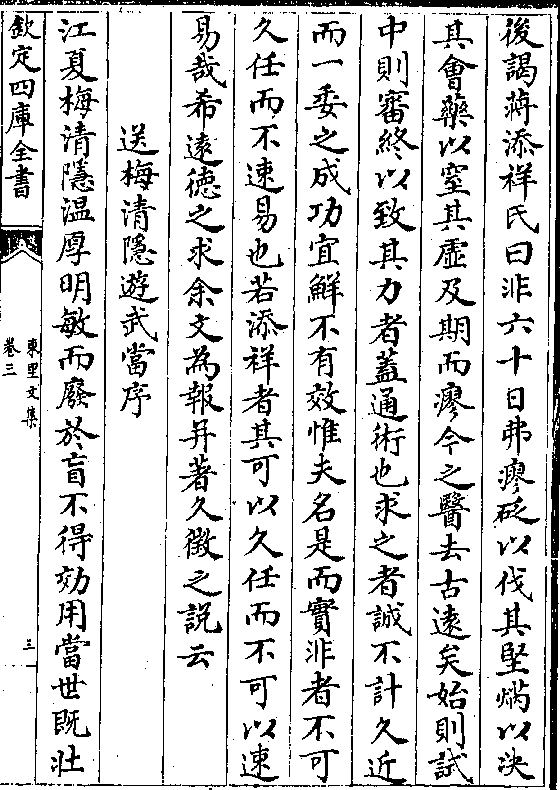 後謁蔣添祥氏曰非六十日弗瘳砭以伐其堅焫以決
其會藥以窒其虛及期而瘳今之醫去古遠矣始則試
中則審終以致其力者蓋通術也求之者誠不計久近
而一委之成功宜鮮不有效惟夫名是而實非者不可
久任而不速易也若添祥者其可以久任而不可以速
易哉希遠德之求余文為報并著久徵之説云
送梅清隱遊武當序
江夏梅清隱温厚明敏而廢於盲不得効用當世既壯
欽定四庫全書
東里文集
卷三
三